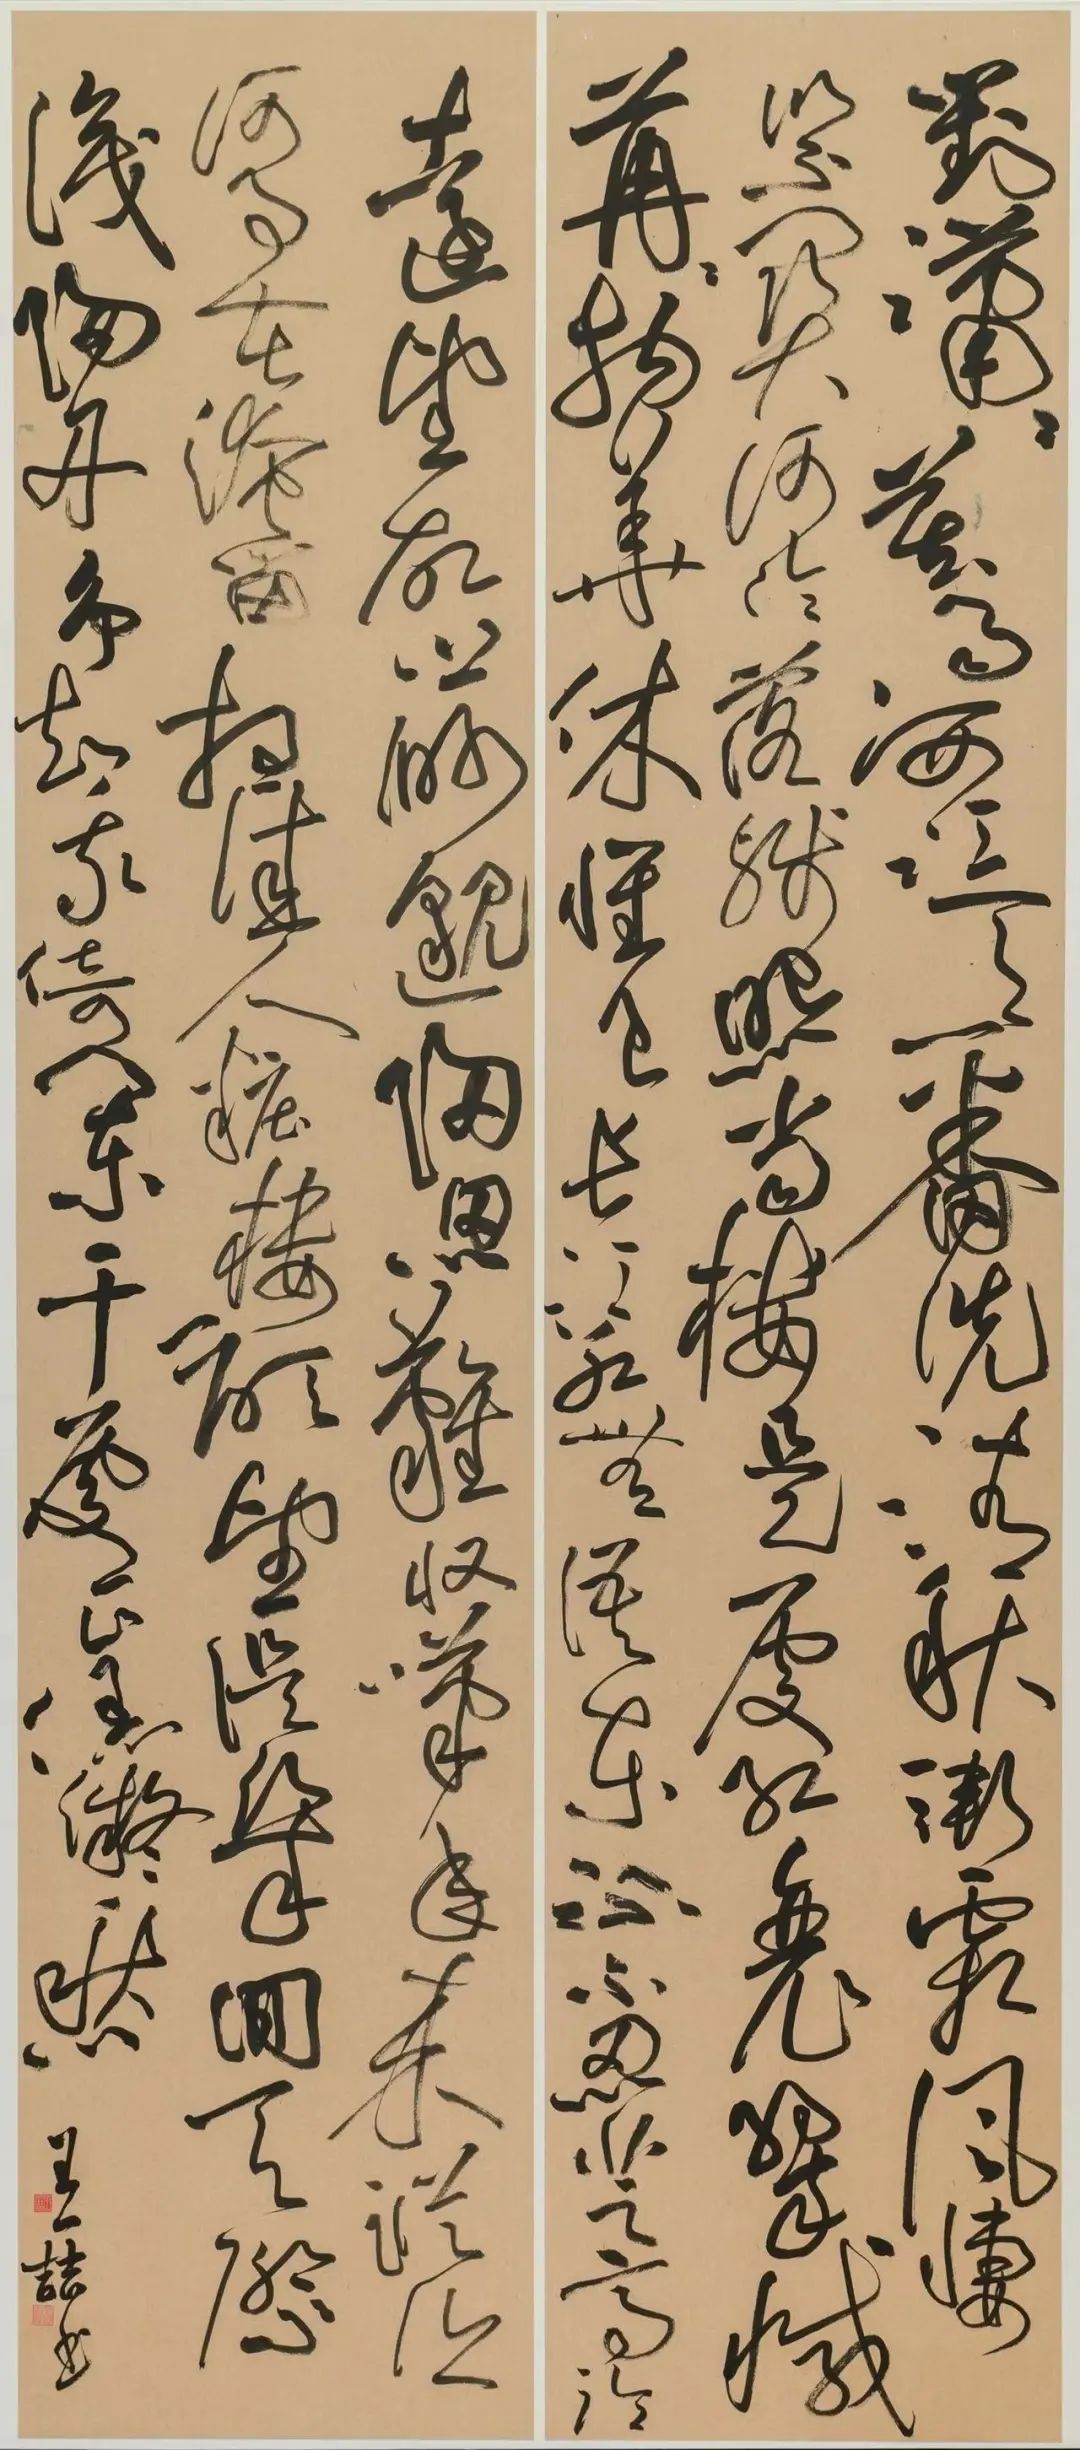 對瀟瀟暮雨灑江天一番洗清秋漸霜風悽
緊關河冷落殘照當樓是處紅衰翠減
苒苒物華休惟有長江水無語東流不忍登高臨
遠望故鄉渺邈歸思難收嘆年來蹤跡
何事苦淹留想佳人粧樓顒望誤幾回天際
識歸舟爭知我倚闌干處正恁凝愁
王喆书